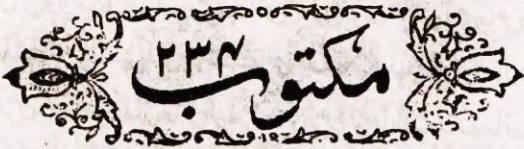 مکتوب ۲۳۴